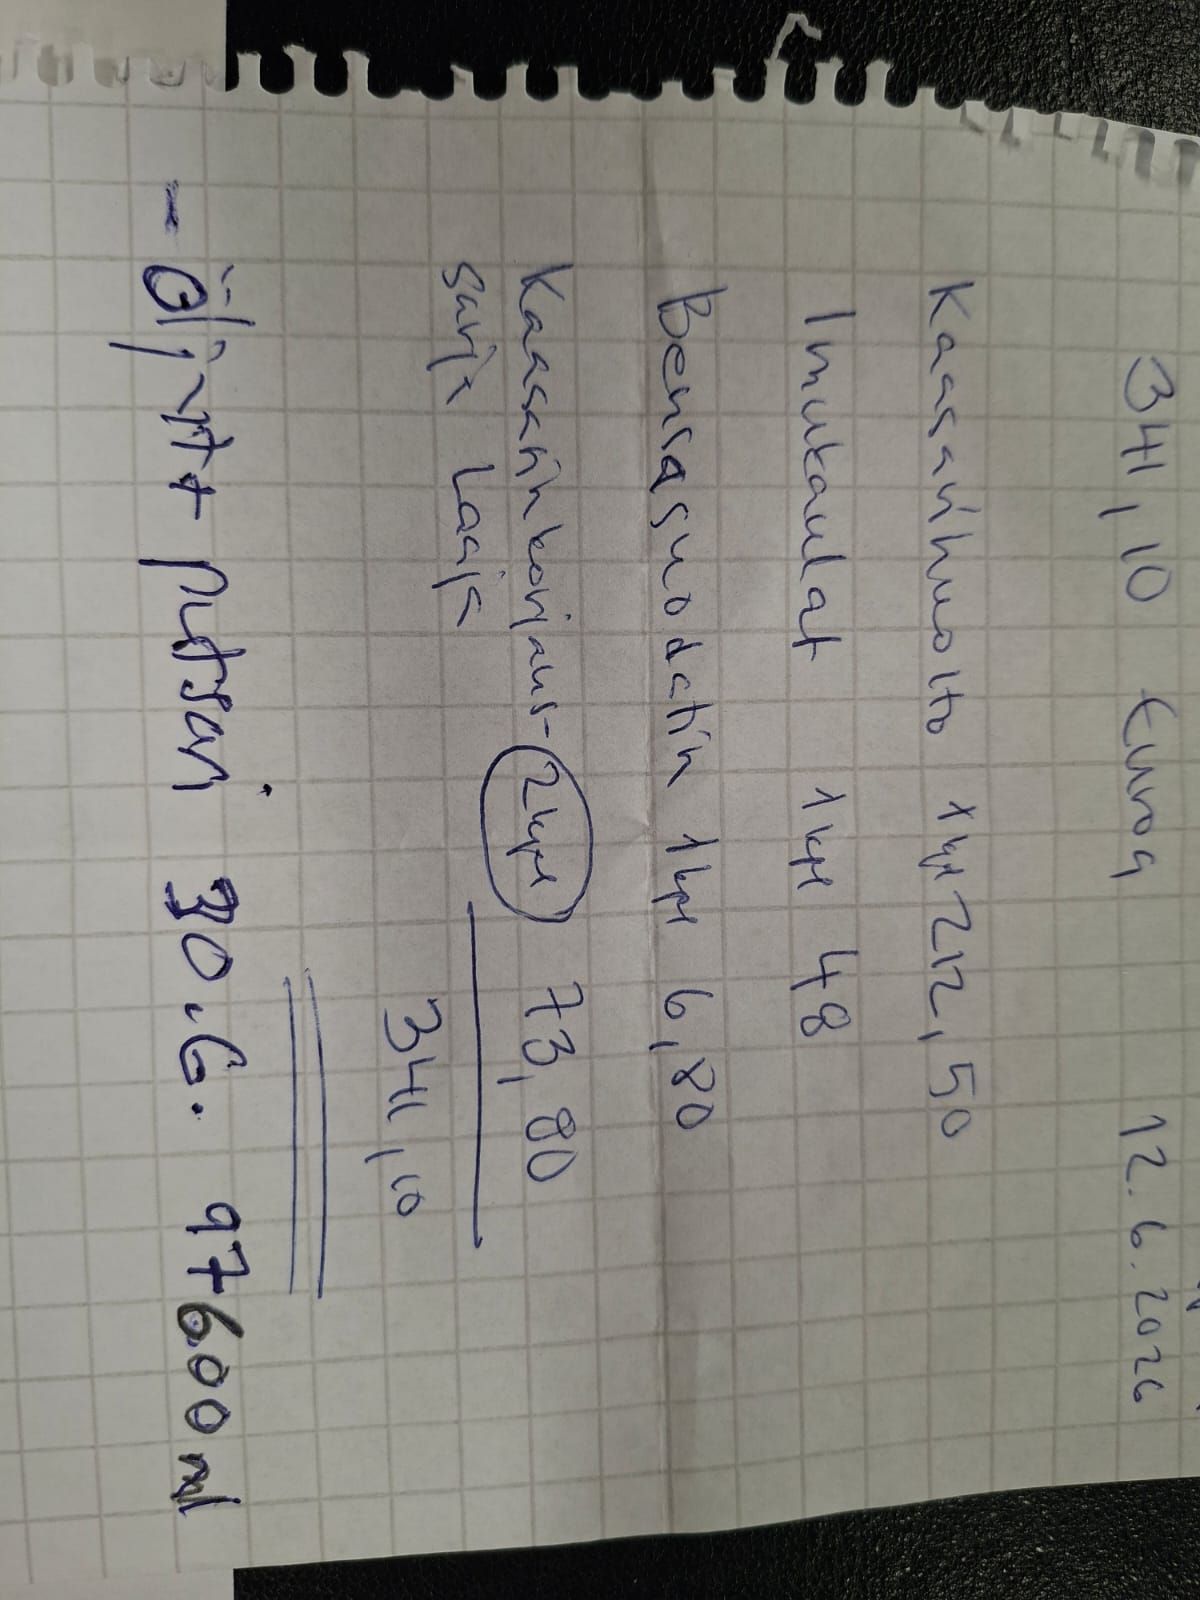 341,10 Euroa 12.6.2026
Kaasarihuolto 1kpl 212,50
Imukaulat 1kpl 48
Bensasuodatin 1kpl 6,80
Kaasarinkorjaus- 2kpl 73,80
sarja Laaja
341,10
- Öljyt + putsari 30.6. 97600 ml